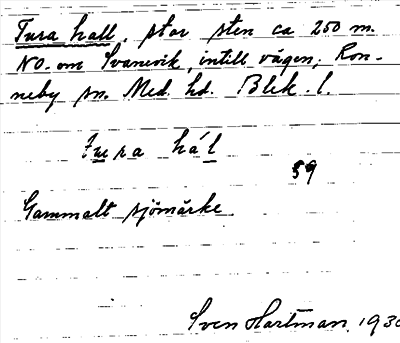 Tura hall, stor sten ca 250 m.
NO. om Svanevik, intill vägen; Ron-
neby sn. Med. hd. Blek. l.
tura hál
59
Gammalt sjömärke
Sven Hartman, 1930